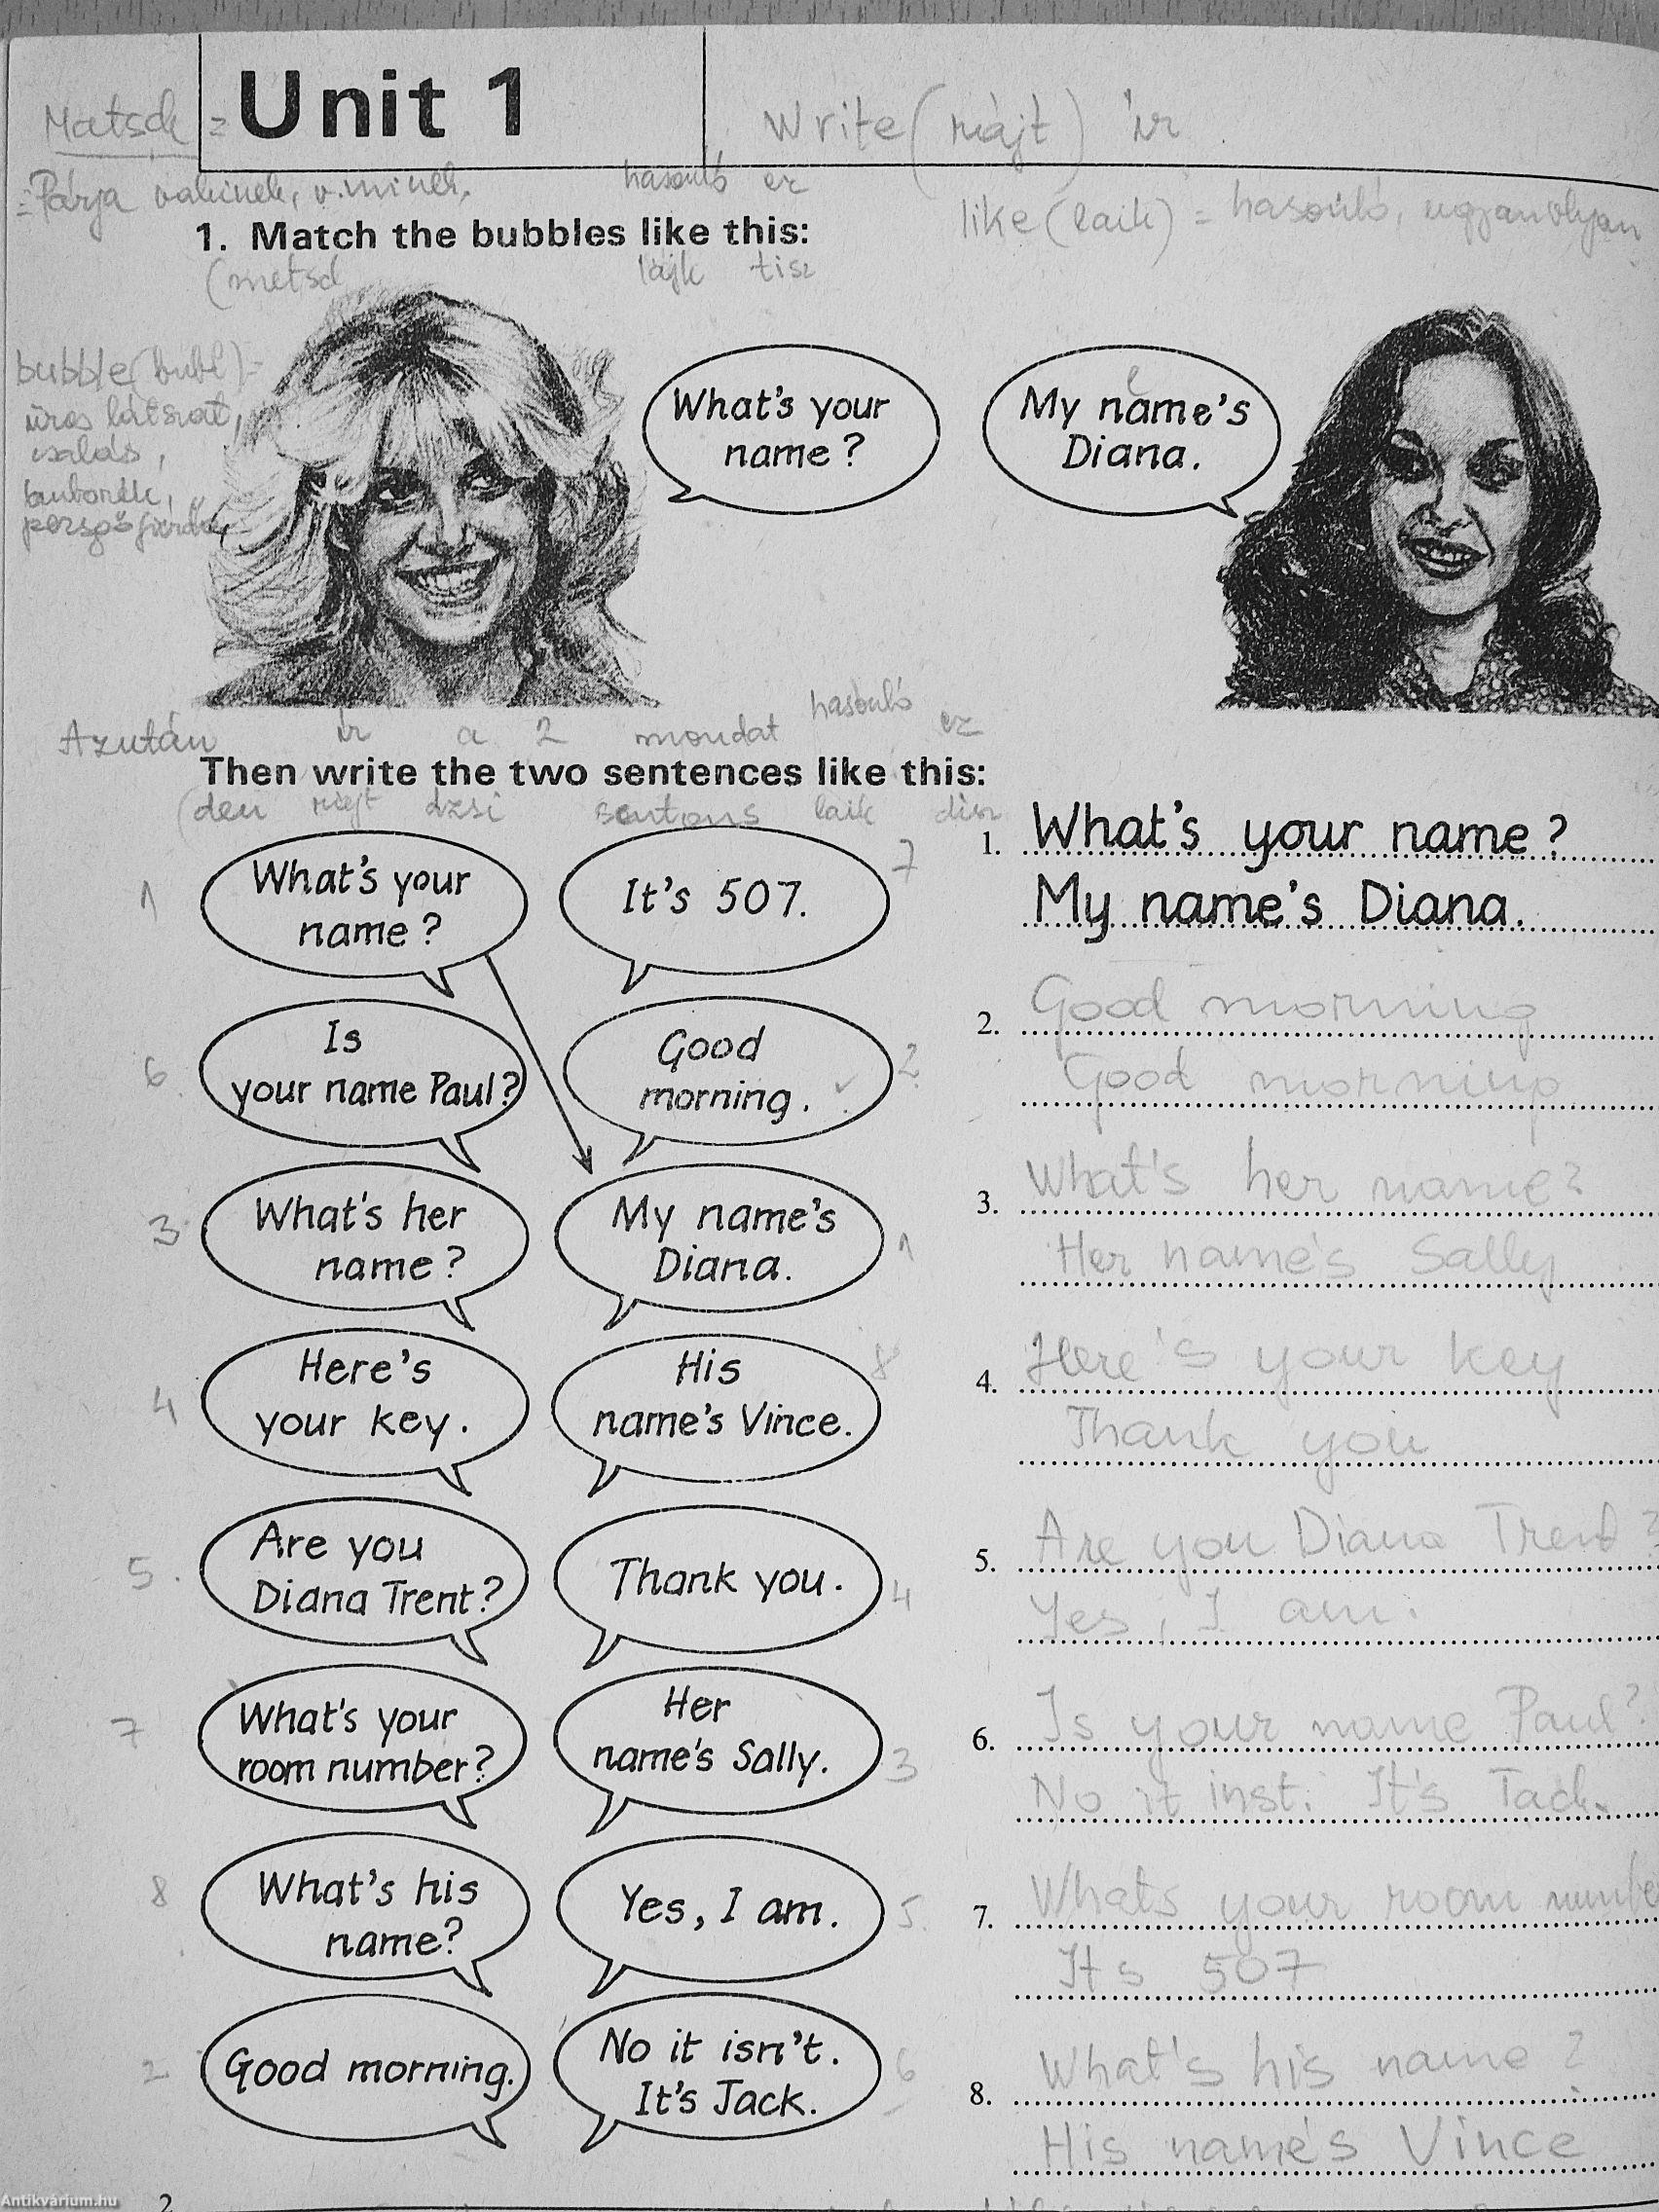 Unit 1
Matsch =
Write (rájt) ír
=Párja valakinek, v.minek,
hasonló ez
like (laik) = hasonló, ugyanolyan
1. Match the bubbles like this:
(metsd lájk tisz
bubble (bubl)=
üres látszat,
csalás,
buborék,
pezsgőfürdő
What's your
name?
My name's
Diana.
Azután ír a 2 mondat hasonló ez
Then write the two sentences like this:
(den rájt dzsi sentons laik disz
1 What's your
name?
It's 507. 7
6 Is
your name Paul?
Good
morning. 2
3 What's her
name?
My name's
Diana. 1
4 Here's
your key.
His
name's Vince. 8
5. Are you
Diana Trent?
Thank you. 4
7 What's your
room number?
Her
name's Sally. 3
8 What's his
name?
Yes, I am. 5.
2 Good morning.
No it isn't.
It's Jack. 6
1. What's your name?
My name's Diana.
2. Good morning
Good morning
3. What's her name?
Her name's Sally
4. Here's your key
Thank you
5. Are you Diana Trent?
Yes, I am.
6. Is your name Paul?
No it inst. It's Tack.
7. Whats your room numbe
Its 507
8. What's his name?
His name's Vince
2
Antikvárium.hu